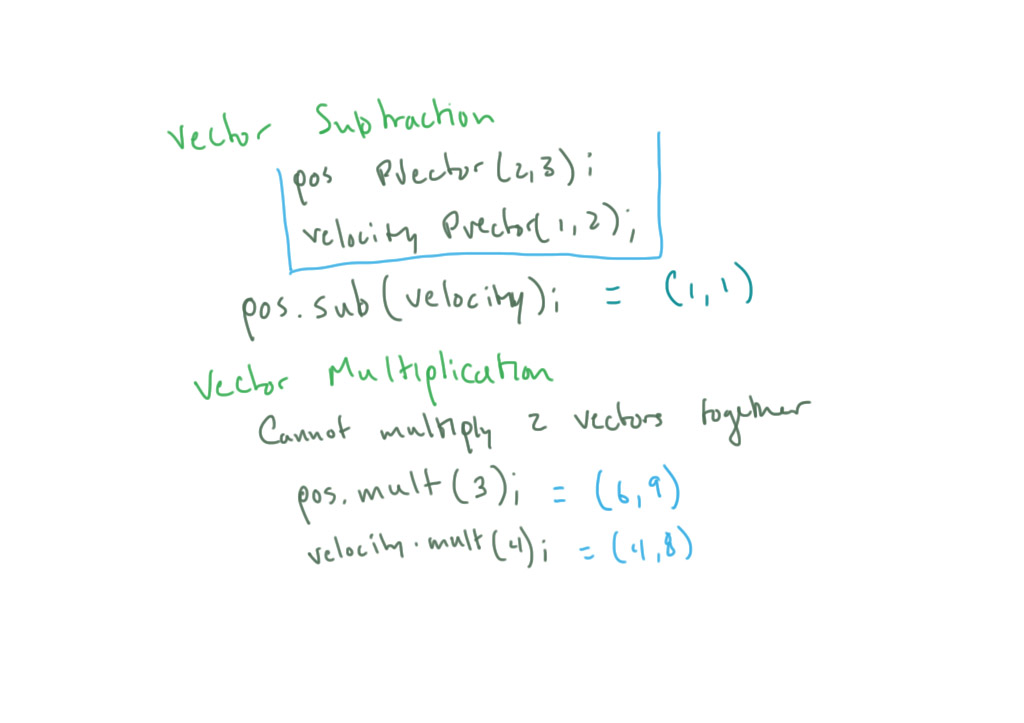 Vector Subtraction
pos PVector(2,3);
velocity Pvector(1,2);
pos.sub(velocity); = (1,1)
Vector Multiplication
Cannot multiply 2 vectors together
pos.mult(3); = (6,9)
velocity.mult(4); = (4,8)